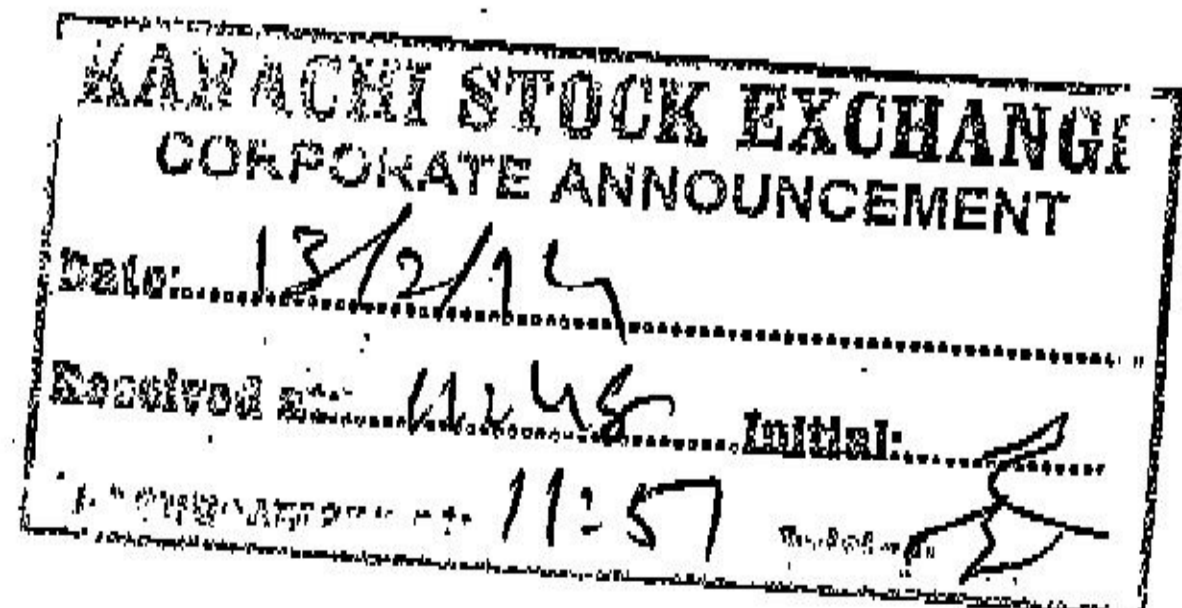 KARACHI STOCK EXCHANGE
CORPORATE ANNOUNCEMENT
Date: 13/2/14
Received at: 11:45 Initial:
11:51 Initial: